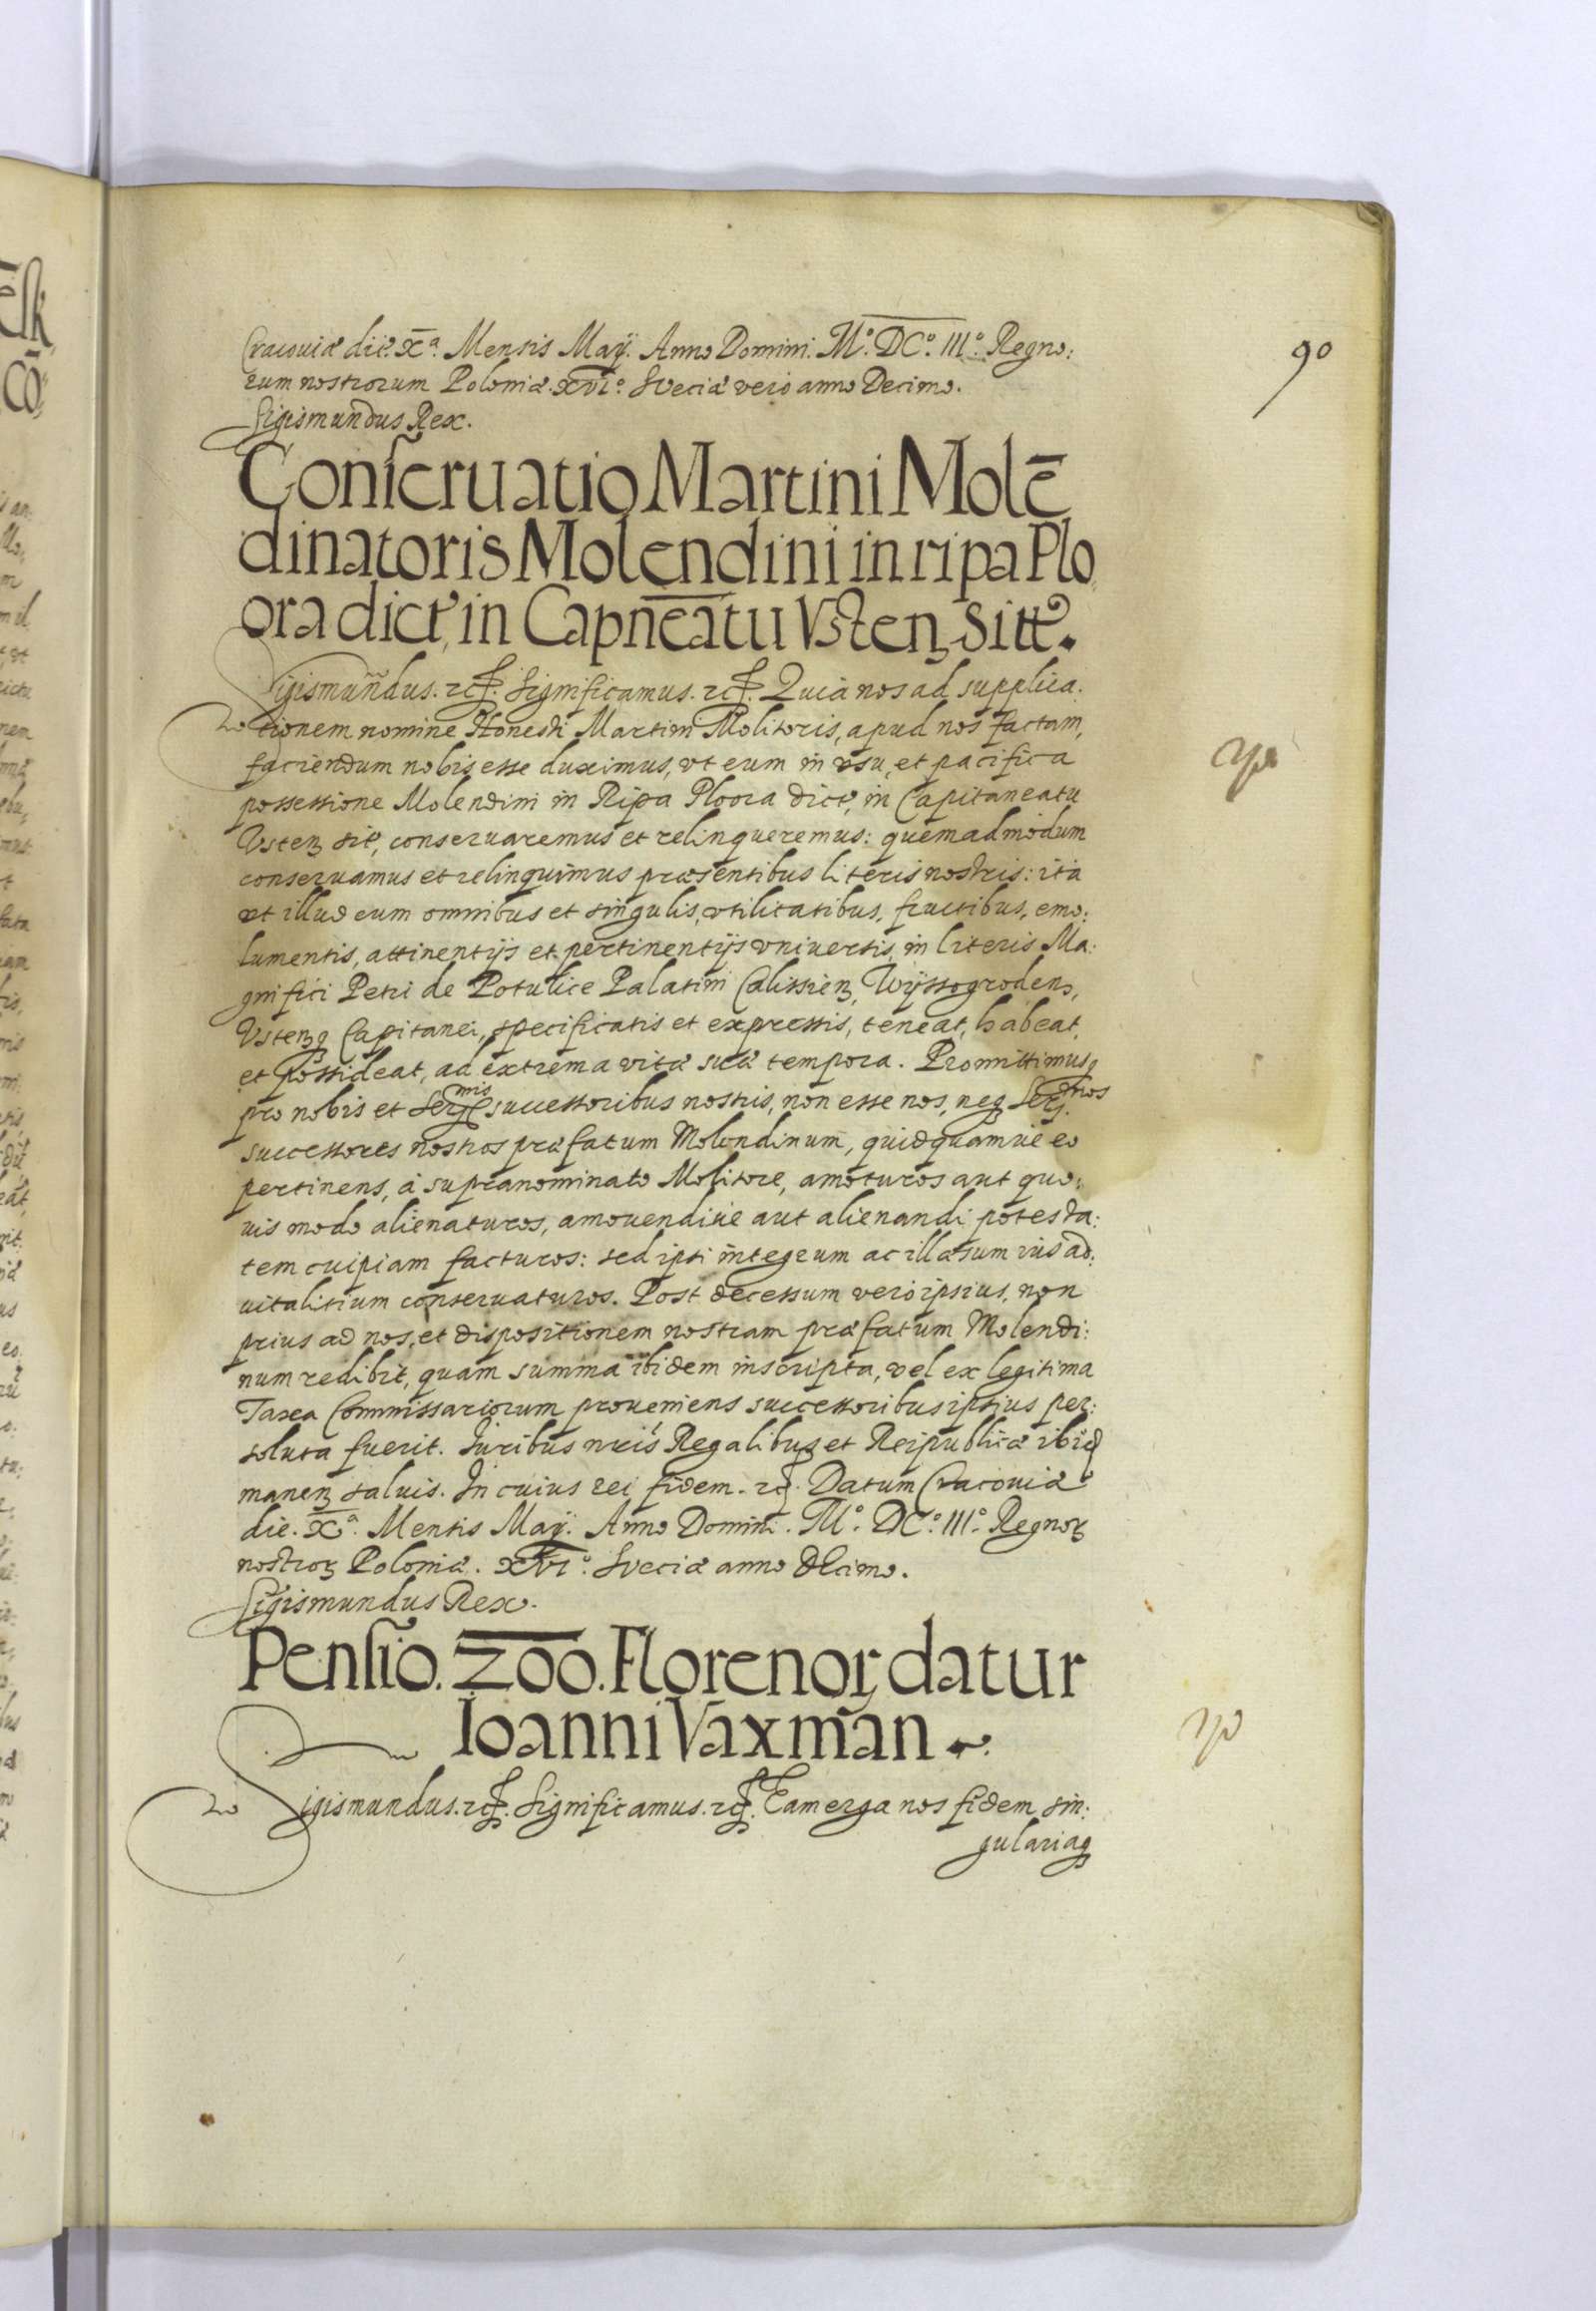 90
Cracoviæ die. Xa. Mensis Maÿ. Anno Domini. Mo. DCo. IIIo. Regno:
rum nostrorum Poloniæ. XVIo. Sveciæ vero anno Decimo.
Sigismundus Rex.
Conseruatio Martini Molē
dinatoris Molendini in ripa Plo
ora dict, in Capneatu Vstenß Sitt.
Sigismundus. etc. Significamus. etc. Quia nos ad supplica:
tionem nomine Honesti Martini Molitoris, apud nos factam,
faciendum nobis esse duximus, vt eum in vsu, et pacifica
possessione Molendini in Ripa Ploora dict, in Capitaneatu
Vstenß sit, conseruaremus et relinqueremus: quemadmodum
conseruamus et relinquimus præsentibus literis nostris: ita
vt illud cum omnibus et singulis, vtilitatibus, fructibus, emo:
lumentis, attinentijs et pertinentijs vniuersis, in literis Ma:
gnifici Petri de Potulice Palatini Calissienß, Wyssogrodenß,
Vstenßq Capitanei, specificatis et expressis, teneat, habeat,
et possideat, ad extrema vitæ suæ tempora. Promittimusq
pro nobis et Sermis successoribus nostris, non esse nos, neq Sermos
successores nostros præfatum Molendinum, quidquamue eo
pertinens, à supranominato Molitore, amoturos aut quo:
uis modo alienaturos, amouendiue aut alienandi potesta:
tem cuipiam facturos: sed ipsi integrum ac illæsum ius ad:
uitalitium conseruaturos. Post decessum vero ipsius, non
prius ad nos, et dispositionem nostram præfatum Molendi:
num redibit, quam summa ibidem inscripta, vel ex legitima
Taxa Commissariorum proueniens successoribus ipsius per:
soluta fuerit. Iuribus nris Regalibus et Reipublicæ ibid
manenß saluis. In cuius rei fidem. etc. Datum Cracoviæ
die. Xa. Mensis Maÿ. Anno Domini. Mo. DCo. IIIo. Regnoꝝ
nostroꝝ Poloniæ. XVIo. Sveciæ anno Decimo.
Sigismundus Rex.
Pensio. 200. Florenoꝝ datur
Ioanni Vaxman
Sigismundus. etc. Significamus. etc. Eam erga nos fidem sin:
gulariaq